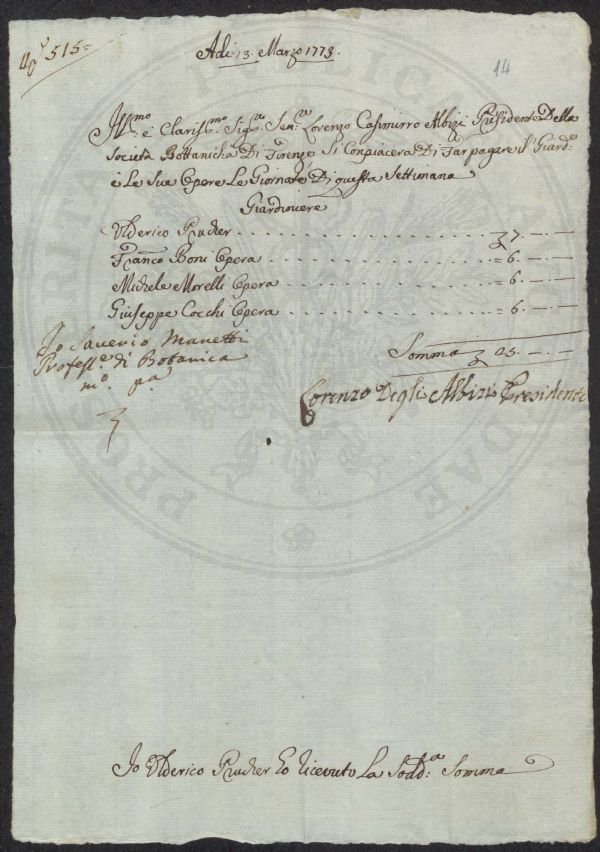 515=
Adi 13. Marzo 1773.
14
Ill.mo e Claris.mo Sig.re Sen.re Lorenzo Casimirro Albizi Presidente Della
Società Bottanicha Di Firenze Si Conpiacera Di Far pagare il Giard.e
e Le Sue Opere Le Giornate Di questa Settimana
Giardiniere
Ulderico Prucher 7.
Fran.co Boni Opera = 6.
Michele Morelli Opera = 6.
Giuseppe Cocchi Opera = 6.
Somma 25.
Io Saverio Manetti
Profess.e di Botanica
m.o p.a
Lorenzo Degli Albizi Presidente
Io Ulderico Prucher Ho ricevuto La Sodd.a Somma